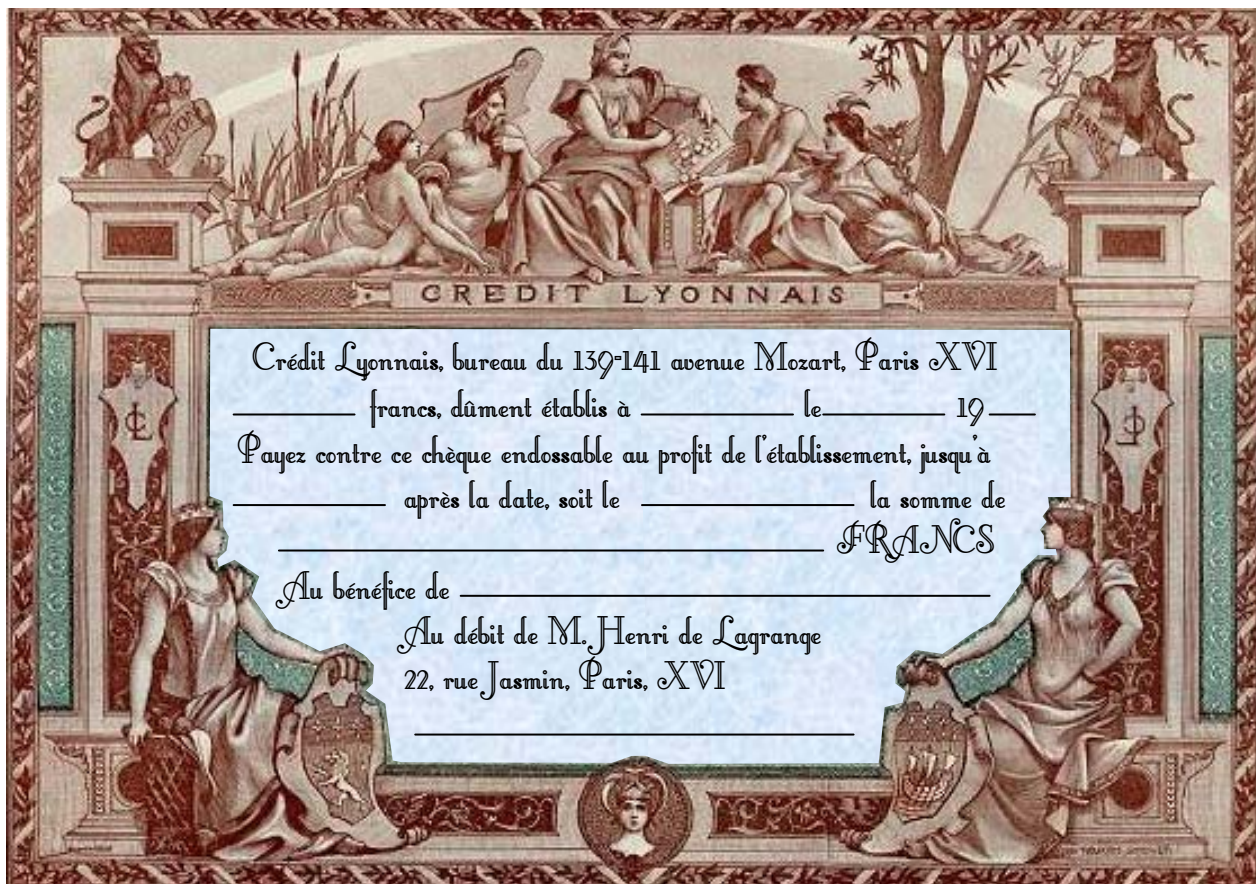 LYON
PARIS
CREDIT LYONNAIS
Crédit Lyonnais, bureau du 139-141 avenue Mozart, Paris XVI
francs, dûment établis à le 19
Payez contre ce chèque endossable au profit de l'établissement, jusqu'à
après la date, soit le la somme de
FRANCS
Au bénéfice de
Au débit de M. Henri de Lagrange
22, rue Jasmin, Paris, XVI
CL